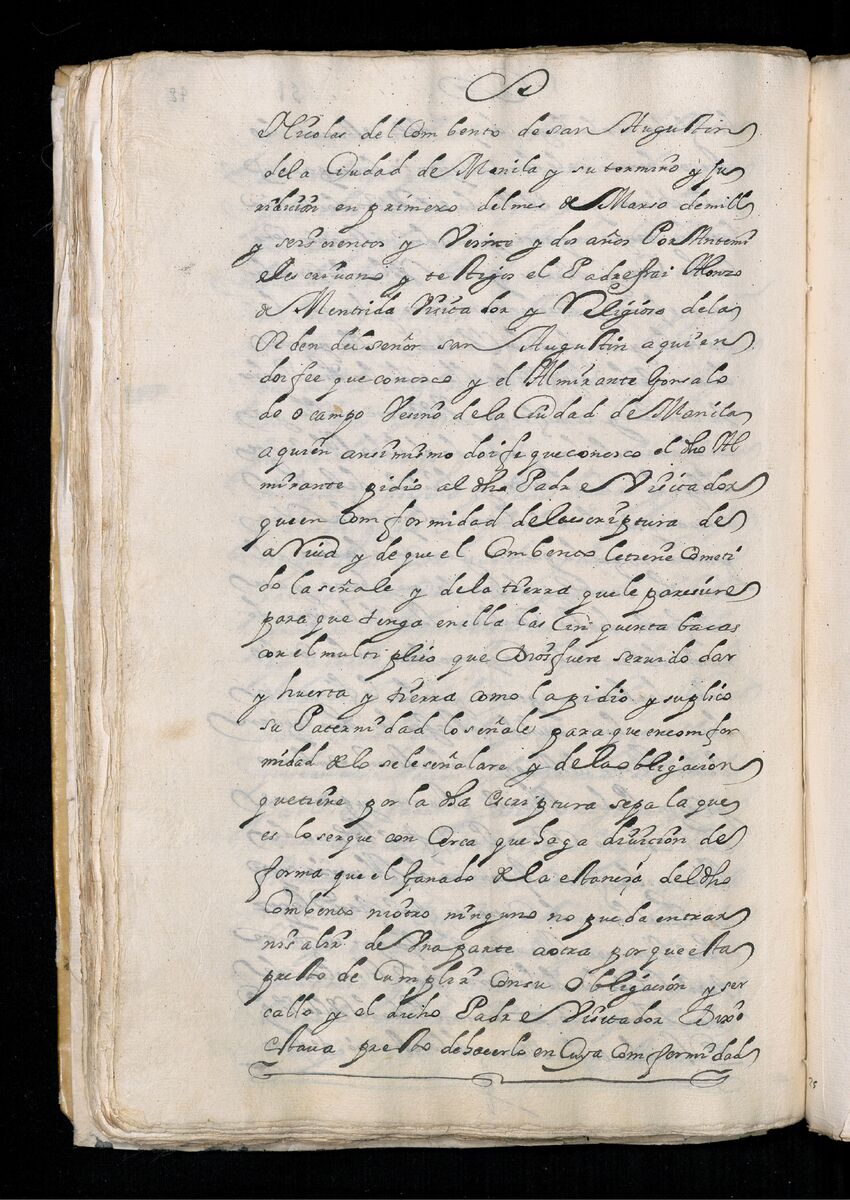 Nicolas del Combento de san Augustin
dela Ciudad de Manila y su termino y ju
ridicion en primero del mes de Marso demill
y seiscientos y Veinte y dos años Por Antemi
el escriuano y testigos el Padre frai Alonzo
de Mentrida Visitador y Religioso dela
Orden del señor san Augustin a quien
doi fee que conosco y el Almirante Gonsalo
de ocampo Vesino de la Ciudad de Manila
a quien ansimismo doi fe que conosco el dho Al
mirante pidio al dho Padre Visitador
que en comformidad de la escriptura de
y de que el Combento le tiene Cometi
do la señale y de la tierra que le paresiere
para que tenga en ella las Cinquenta bacas
con el multiplico que Dios fuere seruido dar
y huerta y tierra como la pidio y suplico
su Paternidad lo señale para que en comfor
midad de lo se le señalare y de la obligacion
que tiene por la dha Escriptura sepa la que
es lo serque con Cerca que haga diuicion de
forma que el Ganado de la estancia del dho
Combento ni otro ninguno no pueda entrar
ni salir de Vna parte a otra por que esta
presto de Cumplir con su Obligacion y ser
callo y el dicho Padre Visitador Dixo
estaua presto de hacerlo en Cuya Comformidad